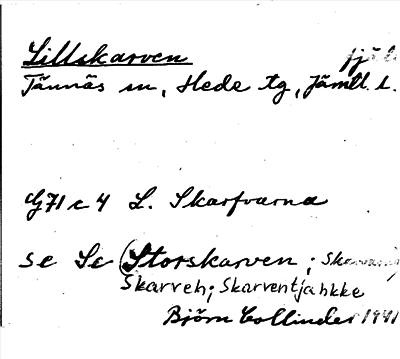 Lillskarven fjäll
Tännäs sn, Hede tg, Jämtl. l.
G71 c 4 L. Skarfvarna
se Se (Storskarven;
Skarveh; Skarventjahkke
Björn Collinder 1941